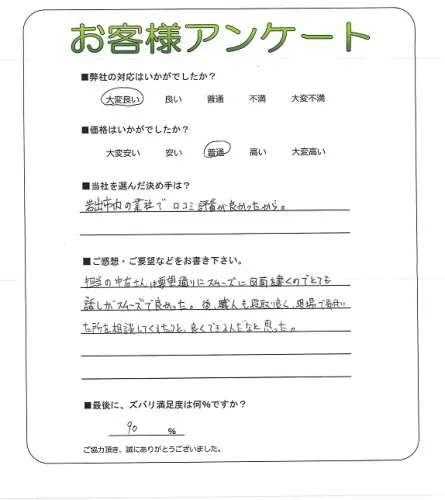 お客様アンケート
■弊社の対応はいかがでしたか?
大変良い 良い 普通 不満 大変不満
■価格はいかがでしたか?
大変安い 安い 普通 高い 大変高い
■当社を選んだ決め手は?
岩出市内の業社で 口コミ評責が良かったから。
■ご感想・ご要望などをお書き下さい。
担当の中古さんは要望通りにスムーズに図面を書くのでとても
話しがスムーズで良かった。後、職人も段取良く、現場で
た所を相談してくれたりと、良くできるんだなと思った。
■最後に、ズバリ満足度は何%ですか?
90 %
ご協力頂き、誠にありがとうございました。